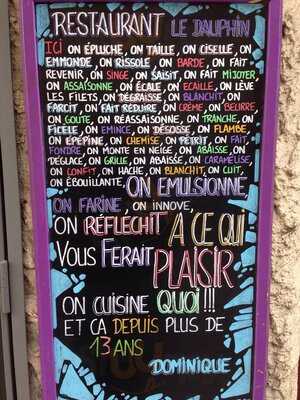 RESTAURANT LE DAUPHIN
ICI ON ÉPLUCHE, ON TAILLE, ON CISELLE, ON
EMMONDE, ON RISSOLE, ON BARDE, ON FAIT
REVENIR, ON SINGE, ON SAISIT, ON FAIT MIJOTER,
ON ASSAISONNE, ON ÉCALE, ON ECAILLE, ON LÈVE
LES FILETS, ON DÉGRAISSE, ON BLANCHIT, ON
FARCIT, ON FAIT RÉDUIRE, ON CRÈME, ON BEURRE
ON GOUTE, ON RÉASSAISONNE, ON TRANCHE, ON
FICELE, ON EMINCE, ON DÉSOSSE, ON FLAMBE,
ON EPÉPINE, ON CHEMISE, ON PETRIT, ON FAIT
FONDRE, ON MONTE EN NEIGE, ON ABAISSE, ON
DÉGLACE, ON GRILLE, ON ABAISSE, ON CARAMÉLISE,
ON CONFIT, ON HACHE, ON BLANCHIT, ON CUIT,
ON ÉBOUILLANTE, ON EMULSIONNE,
ON FARINE, ON INNOVE,
ON RÉFLÉCHIT A CE QUI
VOUS FERAIT PLAISIR
ON CUISINE QUOI!!!
ET CA DEPUIS PLUS DE
13 ANS
DOMINIQUE